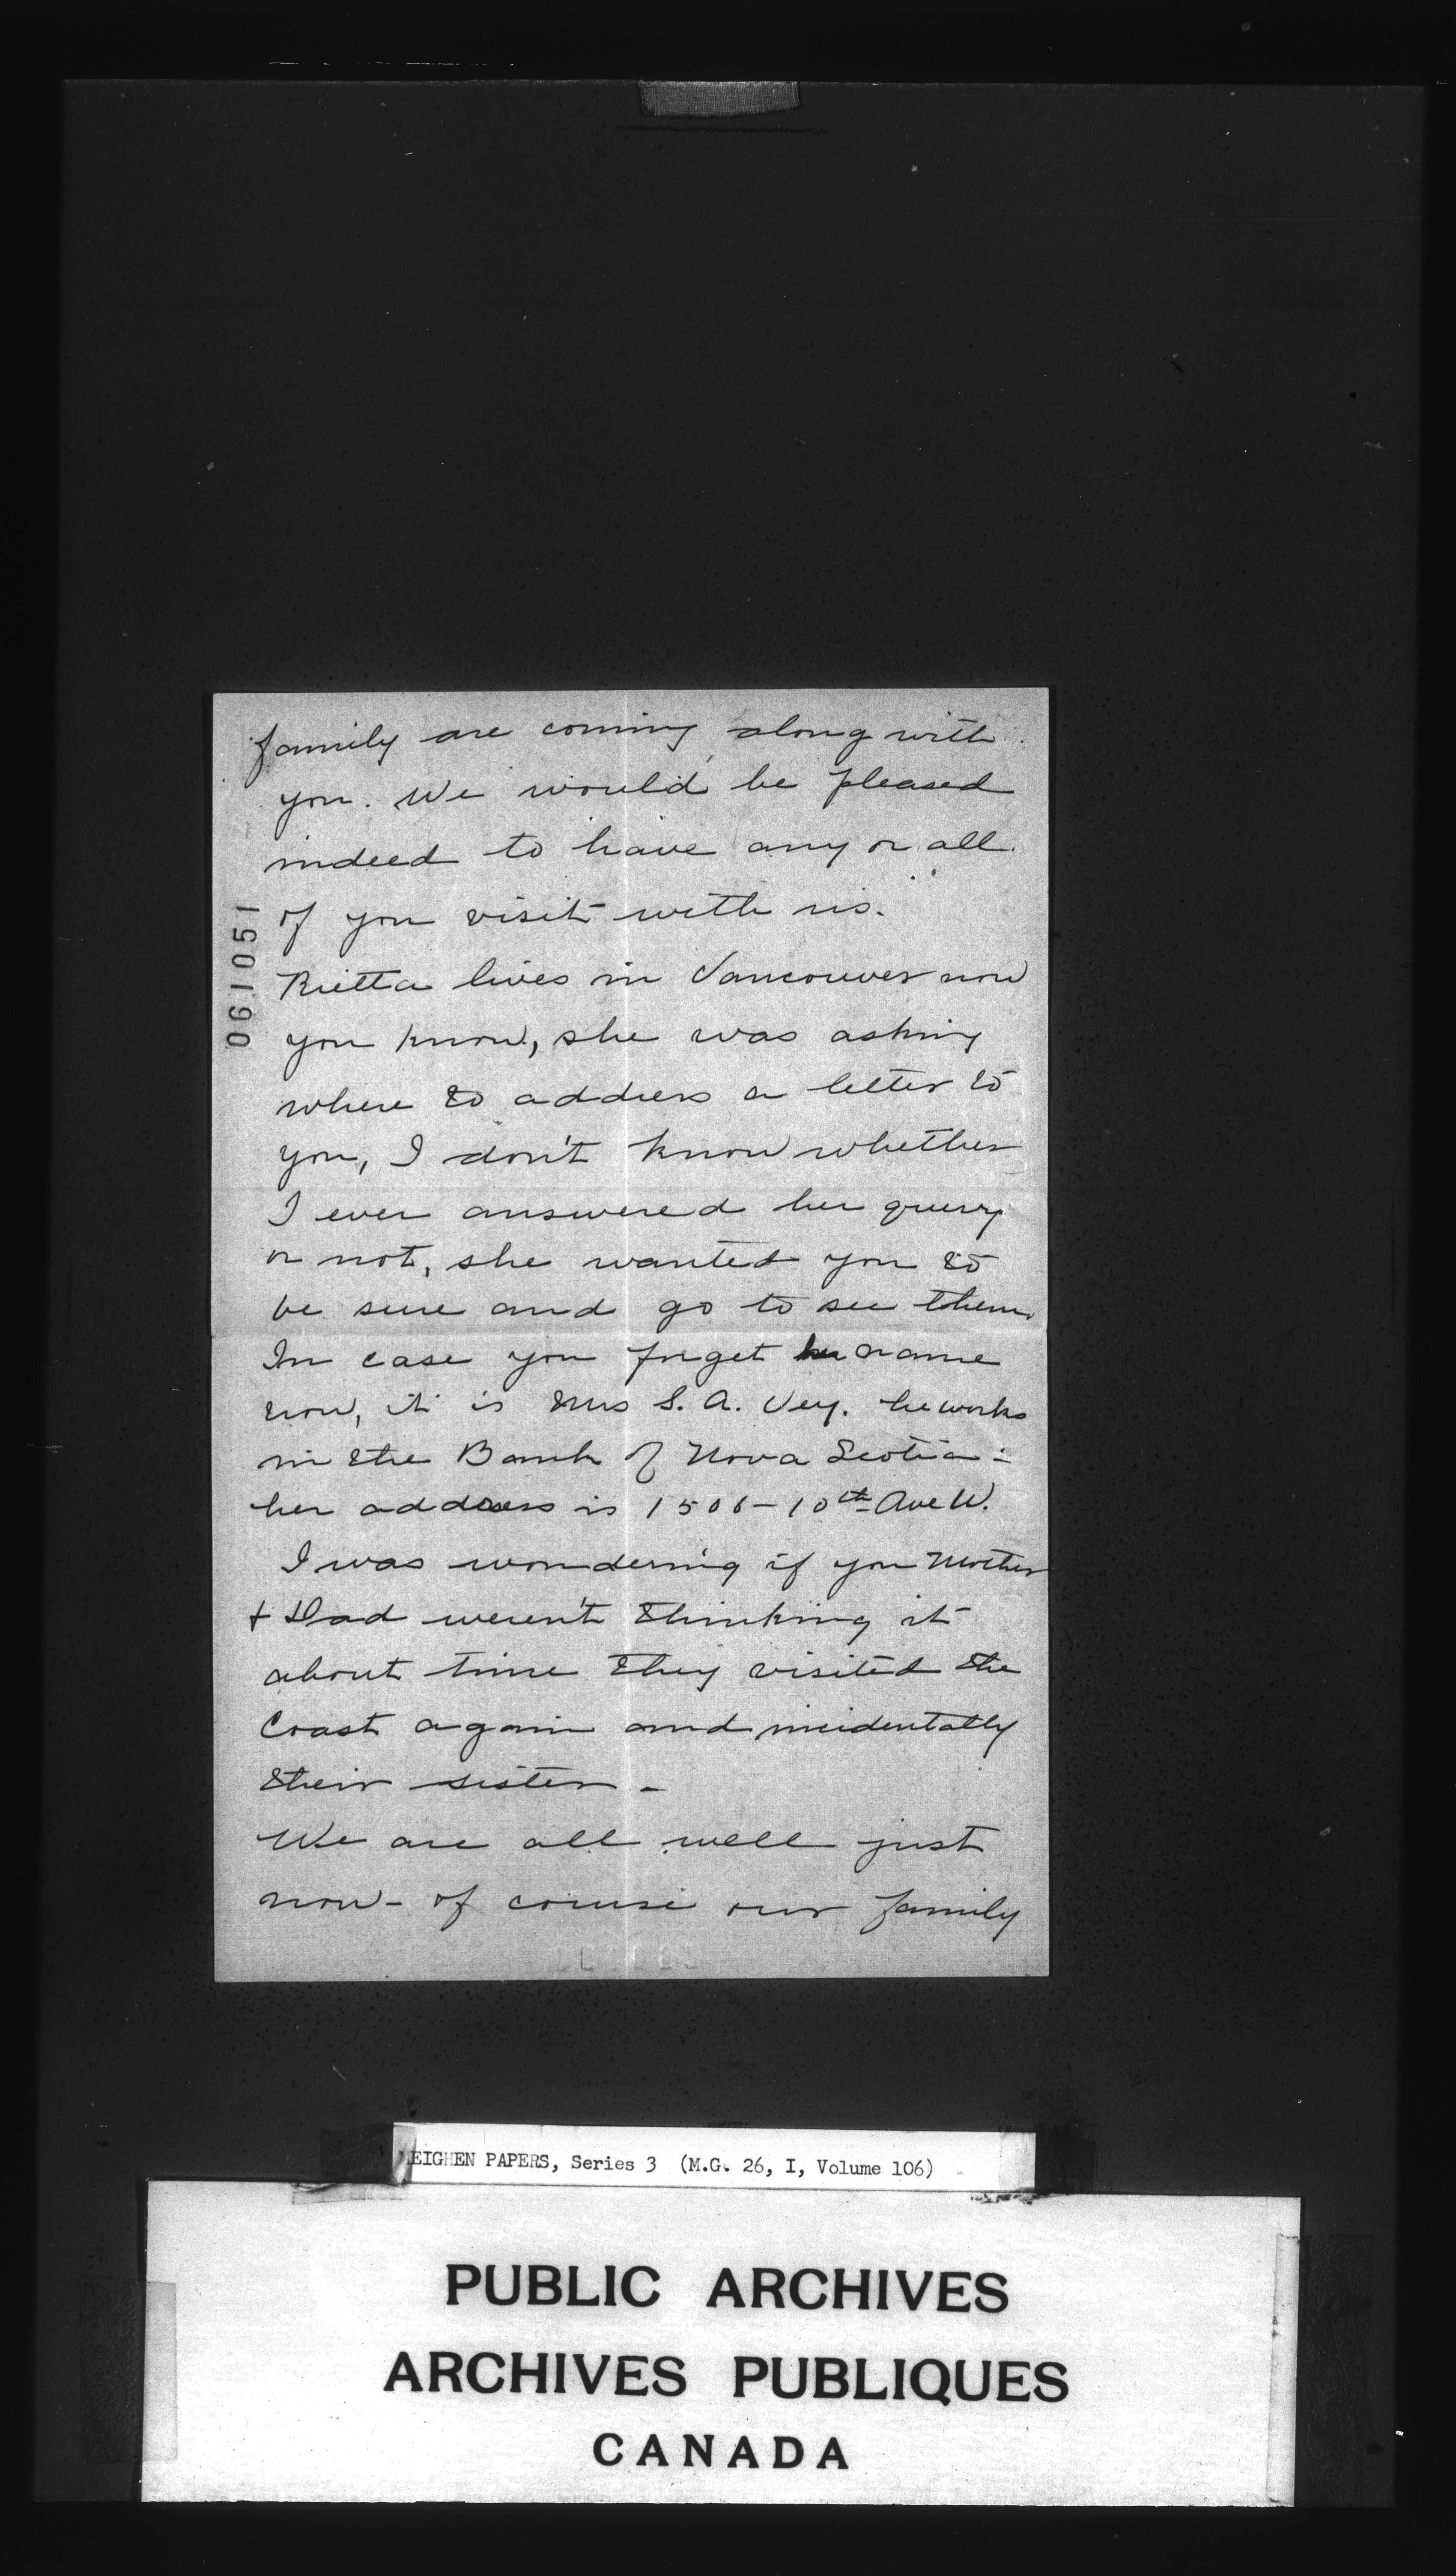 family are coming along with
you. We would be pleased
indeed to have any or all
of you visit with us.
Rietta lives in Vancouver now
you know, she was asking
where to address a letter to
you, I don't know whether
I ever answered her query
or not, she wanted you to
be sure and go to see them
In case you forget her name
now, it is Mrs S. A. Vey. he works
in the Bank of Nova Scotia -
her address is 1506 - 10th Ave W.
I was wondering if you Mother
+ Dad weren't thinking it
about time they visited the
Coast again and incidentally
their sister -
We are all well just
now - of course our family
061051
MEIGHEN PAPERS, Series 3 (M.G. 26, I, Volume 106)
PUBLIC ARCHIVES
ARCHIVES PUBLIQUES
CANADA